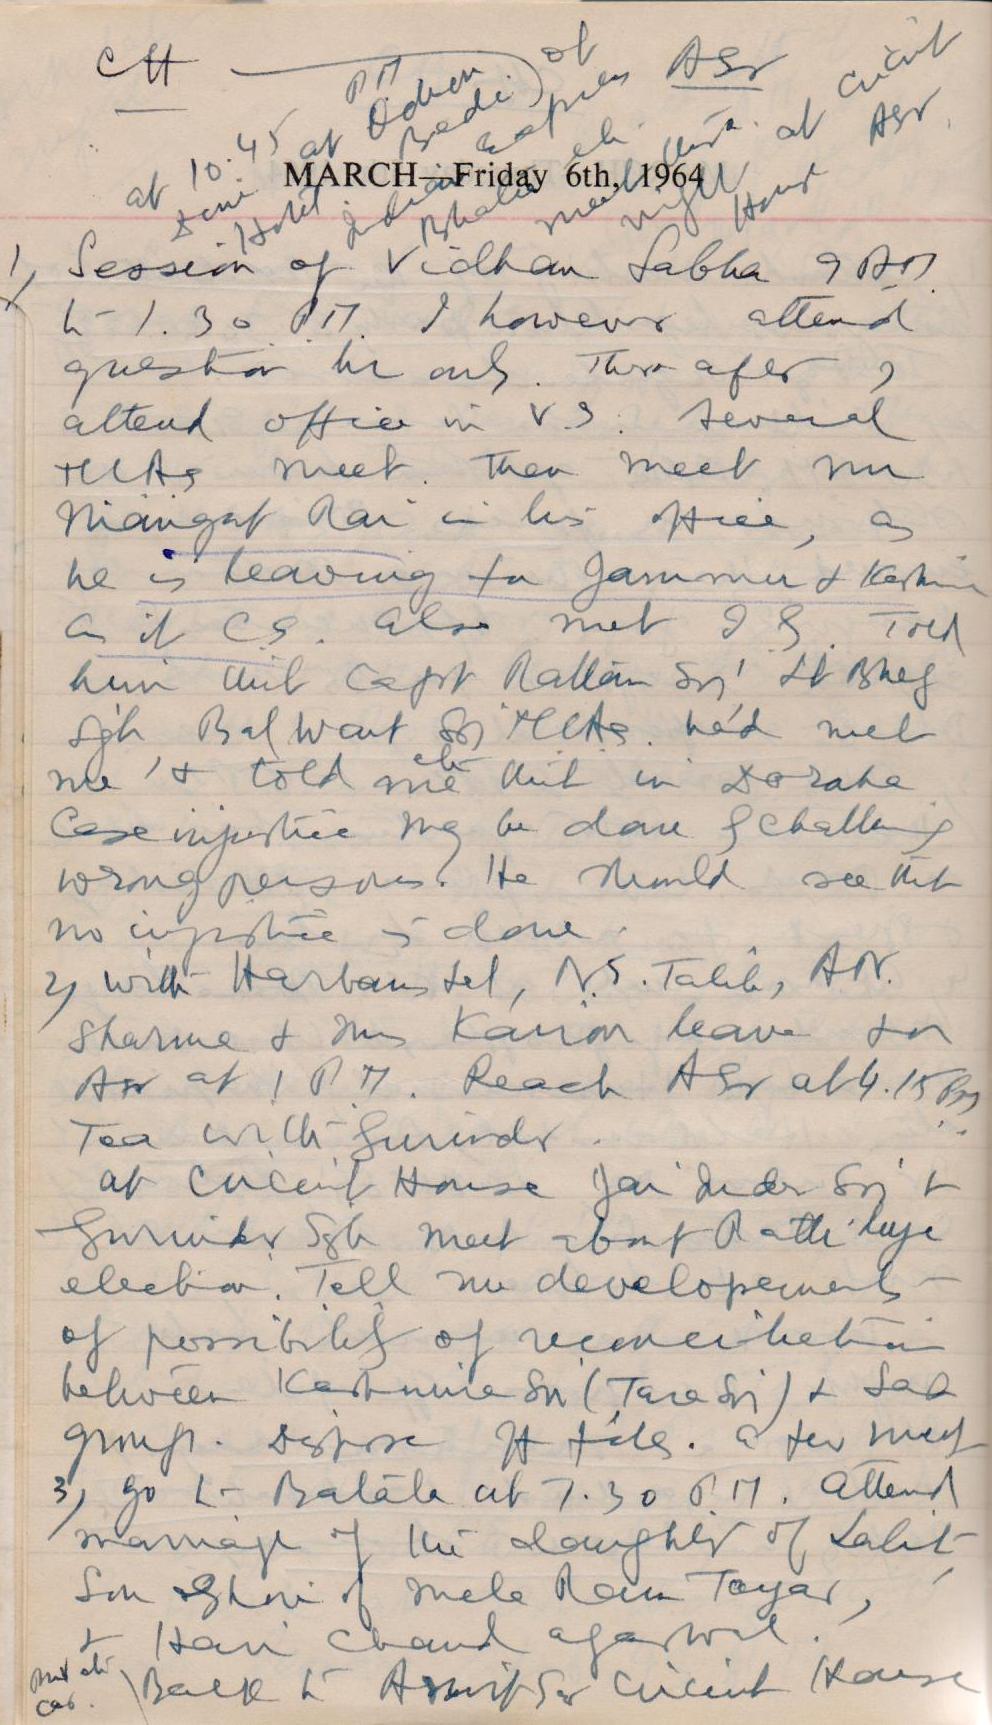 CH ASr
at 10.45 PM at Odven of
dine Hotel Bedi Indian Express
Bhatia etc meet at Circuit
night House ASr.
MARCH—Friday 6th, 1964
1, Session of Vidhan Sabha 9 AM.
to 1.30 PM. I however attend
question hr only. There after I
attend office in V.S. Several
MLAs meet. Then meet Mr
Mangat Rai in his office, as
he is leaving for Jammu & Kashmir
as it C.S. Also met I G. Told
him that Capt Rattan Sn' Lt Bhag
Sgh Balwant Sn MLAs. had met
me & told me etc that in Doraha
Case injustice may be done by challaning
wrong persons. He should see that
no injustice is done.
2, With Harbans Lal, N.S. Talib, A.N.
Sharma & Mrs Kairon leave for
ASr at 1 PM. Reach ASr at 4.15 Pm
Tea with Gurinder.
at Circuit House Jai Inder Sn' &
Gurinder Sgh meet about
election. Tell me developements
of possibility of reconciliation
between Kashmira Sn (Tara Sn) & Sab
group. Dispose off files. a few meet
3, go to Batala at 7.30 PM. Attend
marriage of the daughter of Lalit
Son of Mela Ram Tayar,
& Hari Chand Agarwal.
Back to Amritsar Circuit House
car.